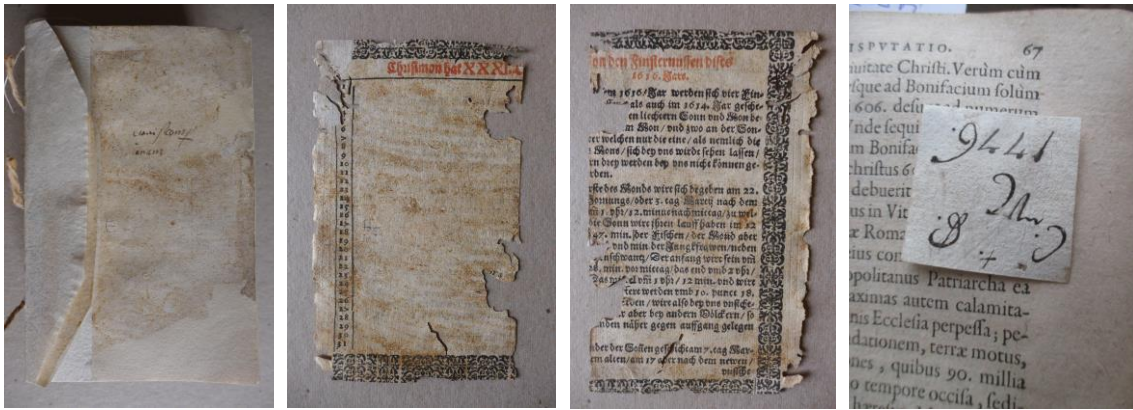 Christmon hat XXXI
6
7
8
9
10
11
12
13
14
15
16
17
18
19
20
21
22
23
24
25
26
27
28
29
30
31
on den Finsternussen dises
1616. Jars.
1616/Jar werden sich vier Fin-
als auch im 1614. Jar gesche-
en liechtern Sonn vnd Mon be-
m Mon / vnd zwo an der Son-
er welchen nur die eine / als nemlich die
Mons / sich bey vns wirdt sehen lassen /
drey werden bey vns nicht können ge-
rden.
rste des Monds wirt sich begeben am 22.
ornungs / oder 3. tag Martij nach dem
m 1. vhr / 12. minut nach mittag / zu wel-
die Sonn wirt jhren lauff haben im 12
47. min. der Fischen / der Mond aber
vnd min der Jungkfrawen / neben
nschwantz / Der anfang wirt sein vm
28. min. vor mittag / das end vmb 2 vhr /
vm 1 vhr / 12 min. vnd wirt
werden vmb 10. punct 18.
/ wirt also bey vns vnsiche-
r aber bey andern Völckern / so
nden näher gegen auffgang gelegen
der Sonnen geschicht am 7. tag Mar-
alten / am 17 aber nach dem newen /
ISPVTATIO. 67
nuitate Christi. Verùm cùm
sque ad Bonifacium solùm
606. desu
nde sequi
m Bonifa
christus 6
debuerit
us in Vit
æ Roma
eius con
opolitanus Patriarcha ea
aximas autem calamita-
nis Ecclesia perpessa; pe-
dationem, terræ motus,
ones, quibus 90. millia
o tempore occisa, sedi-
9441